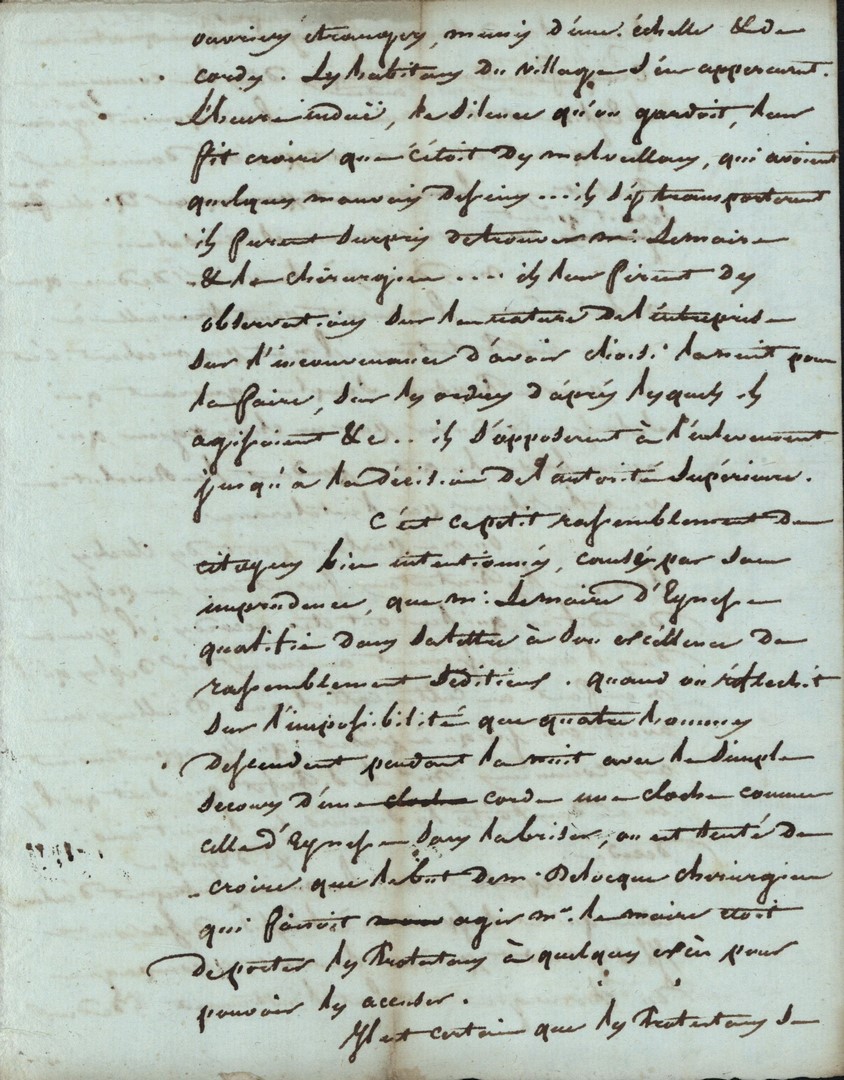 ouvriers étrangers, munis d'une échelle & de
cordes. Les habitans du village s'en apperçurent.
L'heure induë, le silence qu'on gardoit, leur
fit croire que c'étoit des malveillans, qui avoient
quelques mauvais desseins ... ils s'y transporterent
ils furent surpris de trouver mr. Lemaire
& le chirurgien .... ils leur firent des
observations sur la nature de l'entreprise
sur l'inconvenance d'avoir choisi la nuit pour
la faire, sur les ordres d'après lesquels ils
agissoient &c .. ils s'opposerent à l'enlevement
jusqu'à la décision de l'autorité Supérieure.
C'est ce petit rassemblement de
citoyens bien intentionnés, causé par son
imprudence, que mr. Lemaire d'Eynesse
qualifie dans sa lettre à son excellence de
rassemblement séditieux. quand on réfléchit
sur l'impossibilité que quatre hommes
descendent pendant la nuit avec le simple
secours d'une cloche corde une cloche comme
celle d'Eynesse sans la briser, on est tenté de
croire que le but de mr. Delocque chirurgien
qui faisoit agir mr. le maire étoit
de porter les Protestans à quelques excès pour
pouvoir les accuser.
Il est certain que les Protestans de